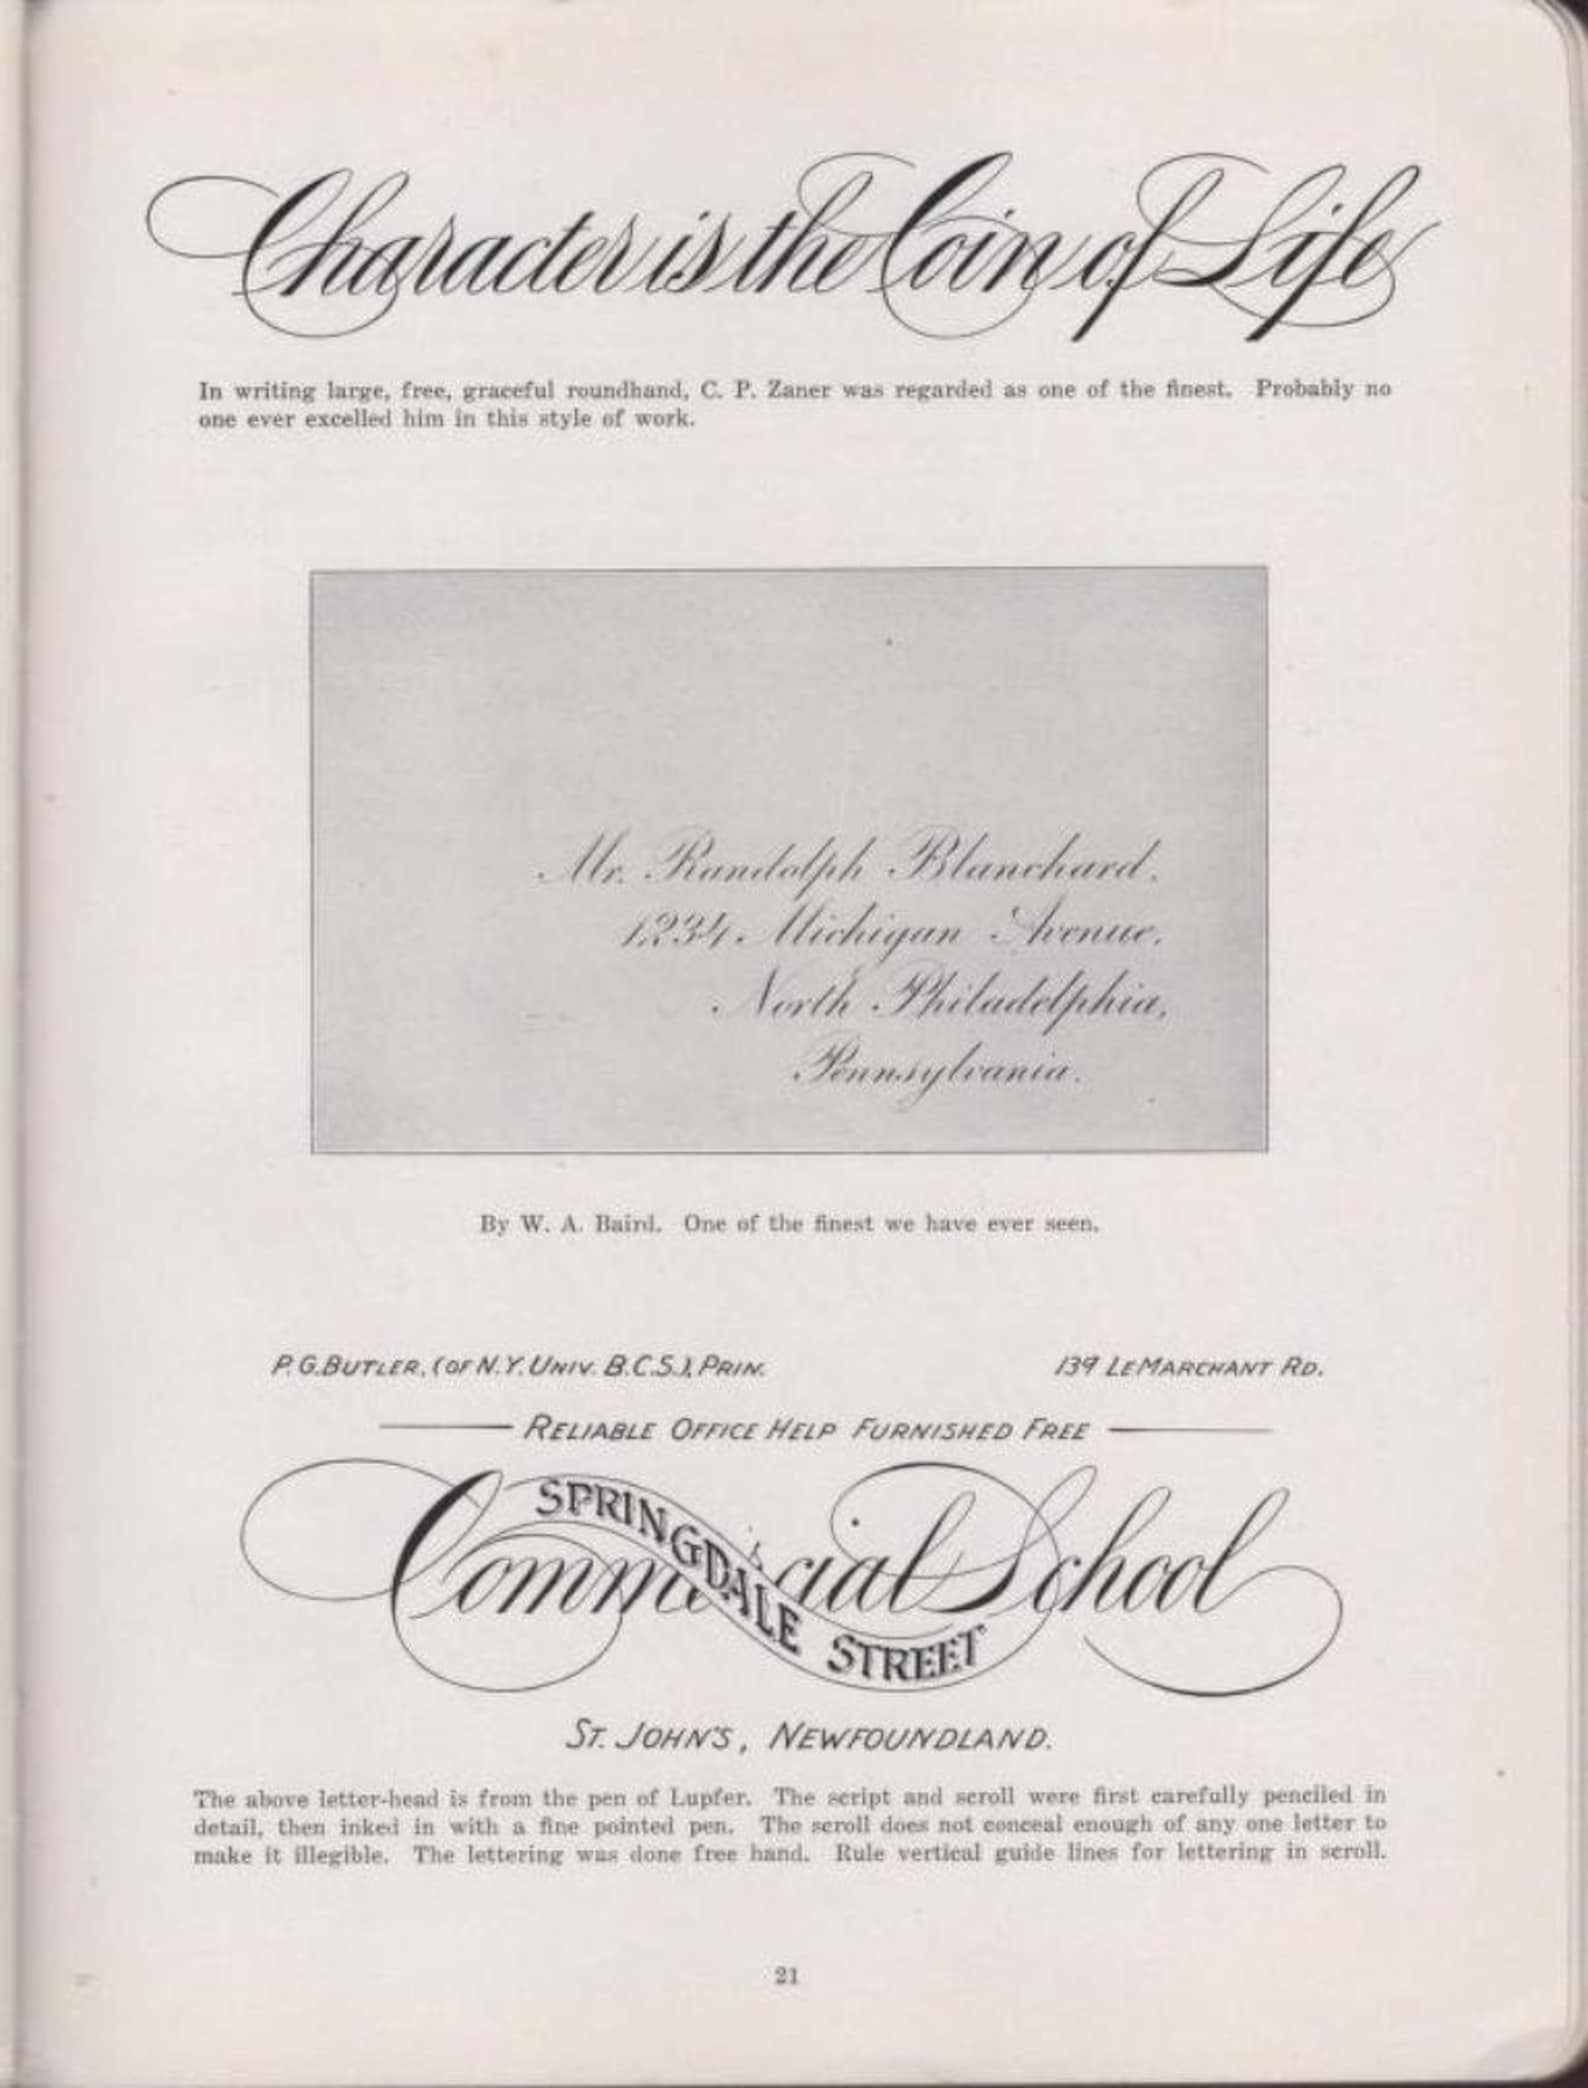 Character is the Coin of Life
In writing large, free, graceful roundhand, C. P. Zaner was regarded as one of the finest. Probably no
one ever excelled him in this style of work.
Mr. Randolph Blanchard,
1234 Michigan Avenue,
North Philadelphia,
Pennsylvania.
By W. A. Baird. One of the finest we have ever seen.
P. G. BUTLER, (OF N. Y. UNIV. B.C.S.), PRIN. 139 LEMARCHANT RD.
RELIABLE OFFICE HELP FURNISHED FREE
SPRINGDALE STREET
Commercial School
ST. JOHN'S, NEWFOUNDLAND.
The above letter-head is from the pen of Lupfer. The script and scroll were first carefully penciled in
detail, then inked in with a fine pointed pen. The scroll does not conceal enough of any one letter to
make it illegible. The lettering was done free hand. Rule vertical guide lines for lettering in scroll.
21